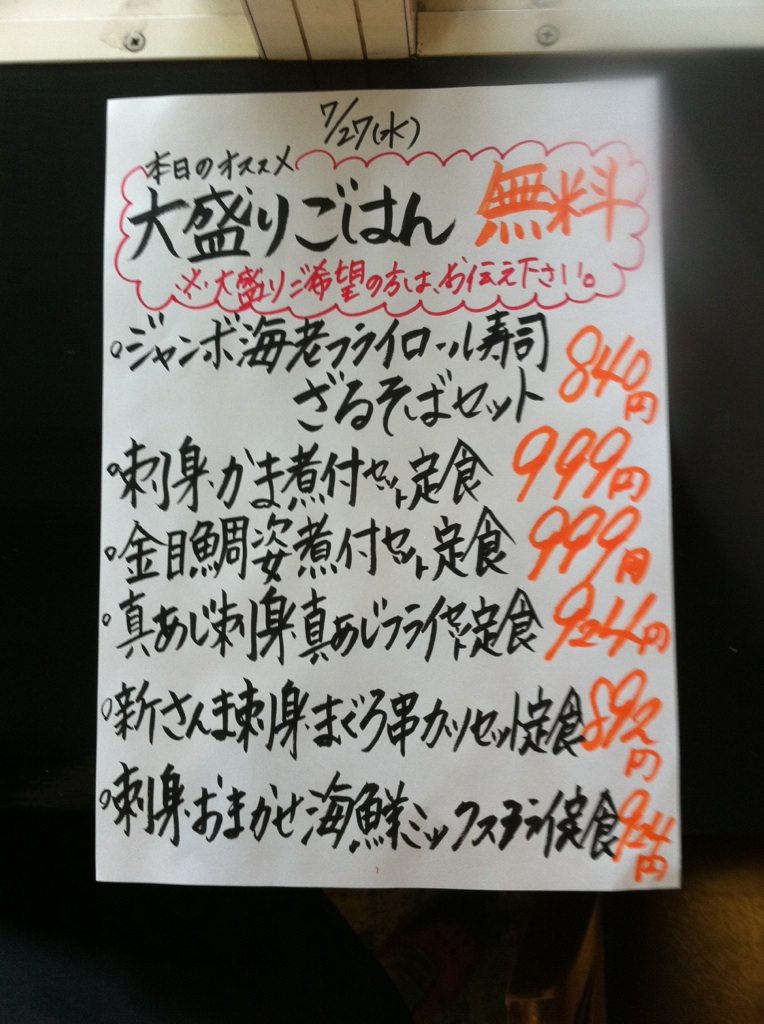 7/27(水)
本日のオススメ
大盛りごはん 無料
※大盛りご希望の方は、お伝え下さい。
○ジャンボ海老フライロール寿司
ざるそばセット 840円
○刺身かま煮付セット定食 999円
○金目鯛姿煮付セット定食 999円
○真あじ刺身真あじフライセット定食 924円
○新さんま刺身まぐろ串カツセット定食 892円
○刺身おまかせ海鮮ミックスフライ定食 924円